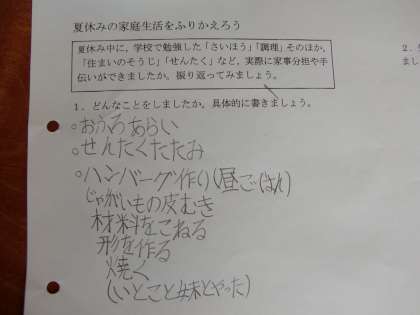 夏休みの家庭生活をふりかえろう
夏休み中に、学校で勉強した「さいほう」「調理」そのほか、
「住まいのそうじ」「せんたく」など、実際に家事分担や手
伝いができましたか。振り返ってみましょう。
1. どんなことをしましたか。具体的に書きましょう。
○おふろあらい
○せんたくたたみ
○ハンバーグ作り(昼ごはん)
じゃがいもの皮むき
材料をこねる
形を作る
焼く
(いとこと妹とやった)
2.
まし